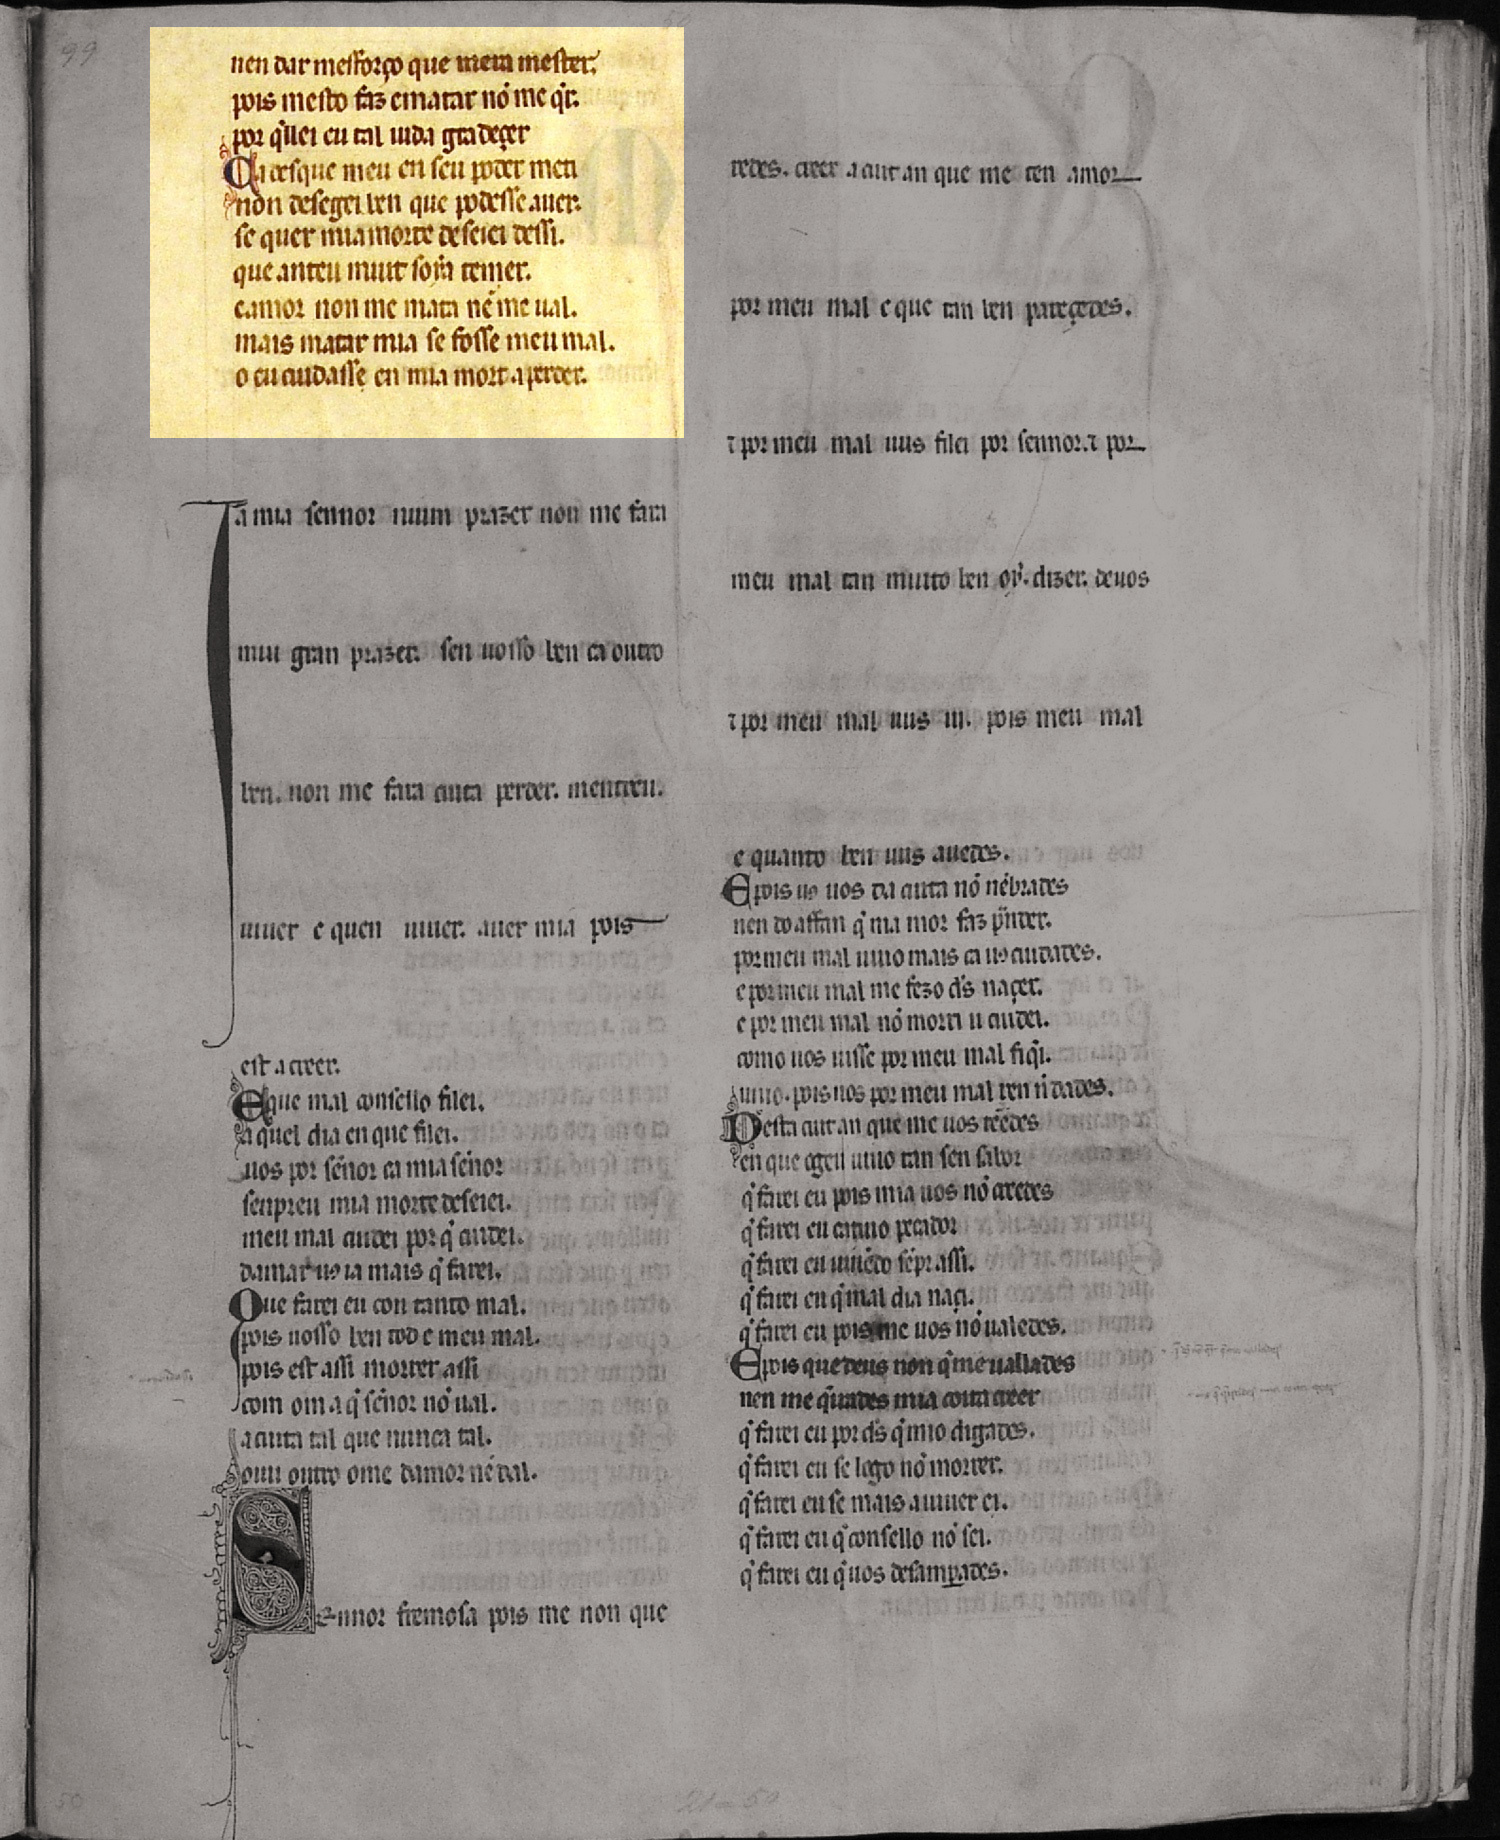 nen dar mesforço que mera mester.
pois mesto faz ematar nõ me q̇r.
por q̇llei eu tal uida gradeçer
Ca desque meu en seu poder meti
non desegei ben que podesse auer.
se quer mia morte deseiei dessi.
que anteu muit soỹa temer.
eamor non me mata nẽ me ual.
mais matar mia se fosse meu mal.
o eu cuidasse en mia mort aprender.
Ia mia sennor niun prazer non me fara
miu gran prazer. sen uosso ben ca outro
ben. non me fara cuita perder. mentreu.
uiuer e quen uiuer. auer mia pois
est a creer.
E que mal consello filei.
a quel dia en que filei.
uos por sẽnor ca mia sẽnor
senpreu mia morte deseiei.
meu mal cuidei por q̃ cuidei.
damar uꝯ ia mais q̃ farei.
Que farei eu con tanto mal.
pois uosso ben tod e meu mal.
pois est assi morrer assi
com om a q̃ sẽnor nõ ual.
a cuita tal que nunca tal.
ouu outro ome damor nẽ tal.
Sennor fremosa pois me non que
redes. creer a cuit an que me ten amor
por meu mal e que tan ben pareçedes.
⁊ por meu mal uus filei por sennor. ⁊ por
meu mal tan muito ben oỹ. dizer. de uos
⁊ por meu mal uus ui. pois meu mal
e quanto ben uus auedes.
E pois uꝯ uos da cuita nõ nẽbrades
nen do affan q̃ ma mor faz p̃nder.
por meu mal uiuo mais ca uꝯ cuidades.
e por meu mal me fezo ds̃ naçer.
e por meu mal nõ morri u cuidei.
como uos uisse por meu mal fiq̃i.
uiuo. pois uos por meu mal ren ñ dades.
Desta cuit an que me uos tẽedes
en que ogeu uiuo tan sen sabor
q̃ farei eu pois mia uos nõ creedes
q̃ farei eu catiuo pecador
q̃ farei eu uiuẽdo sẽpr assi.
q̃ farei eu q̃ mal dia naçi.
q̃ farei eu pois me uos nõ ualedes.
E pois que deus non q̃r me uallades
nen me q̃irades mia coita creer
q̃ farei eu por ds̃ q̃ mio digades.
q̃ farei eu se logo nõ morrer.
q̃ farei eu se mais a uiuer ei.
q̃ farei eu q̃ consello nõ sei.
q̃ farei eu q̃ uos desamꝑades.